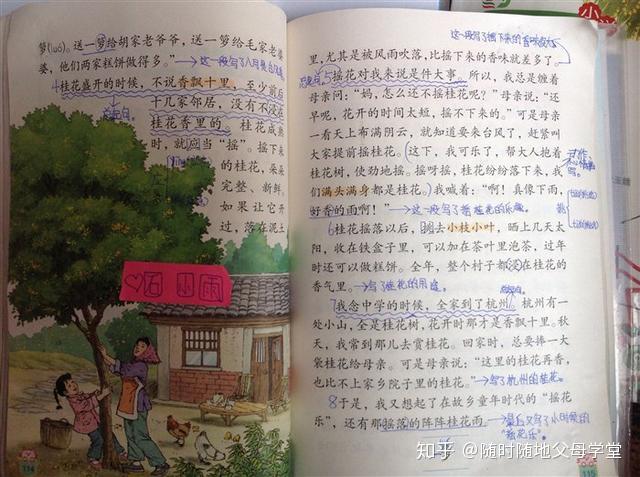 箩(luó)。送一箩给胡家老爷爷，送一箩给毛家老婆
婆，他们两家糕饼做得多。
4桂花盛开的时候，不说香飘十里，至少前后
十几家邻居，没有不浸在
桂花香里的。桂花成熟
时，就应当“摇”。摇下来
的桂花，朵朵
完整、新鲜。
如果让它开
过，落在泥土
石小雨
114
里，尤其是被风雨吹落，比摇下来的香味就差多了。
5摇花对我来说是件大事。所以，我总是缠着
母亲问：“妈，怎么还不摇桂花呢？”母亲说：“还
早呢，花开的时间太短，摇不下来的。”可是母亲
一看天上布满阴云，就知道要来台风了，赶紧叫
大家提前摇桂花。这下，我可乐了，帮大人抱着
桂花树，使劲地摇。摇呀摇，桂花纷纷落下来，我
们满头满身都是桂花。我喊着：“啊！真像下雨，
好香的雨啊！”
6桂花摇落以后，挑去小枝小叶，晒上几天太
阳，收在铁盒子里，可以加在茶叶里泡茶，过年
时还可以做糕饼。全年，整个村子都浸在桂花的
香气里。写了桂花的用途。
7我念中学的时候，全家到了杭州。杭州有一
处小山，全是桂花树，花开时那才是香飘十里。秋
天，我常到那儿去赏桂花。回家时，总要捧一大
袋桂花给母亲。可是母亲说：“这里的桂花再香，
也比不上家乡院子里的桂花。”写了杭州的桂花。
8于是，我又想起了在故乡童年时代的“摇花
乐”，还有那摇落的阵阵桂花雨
115
知乎 @随时随地父母学堂